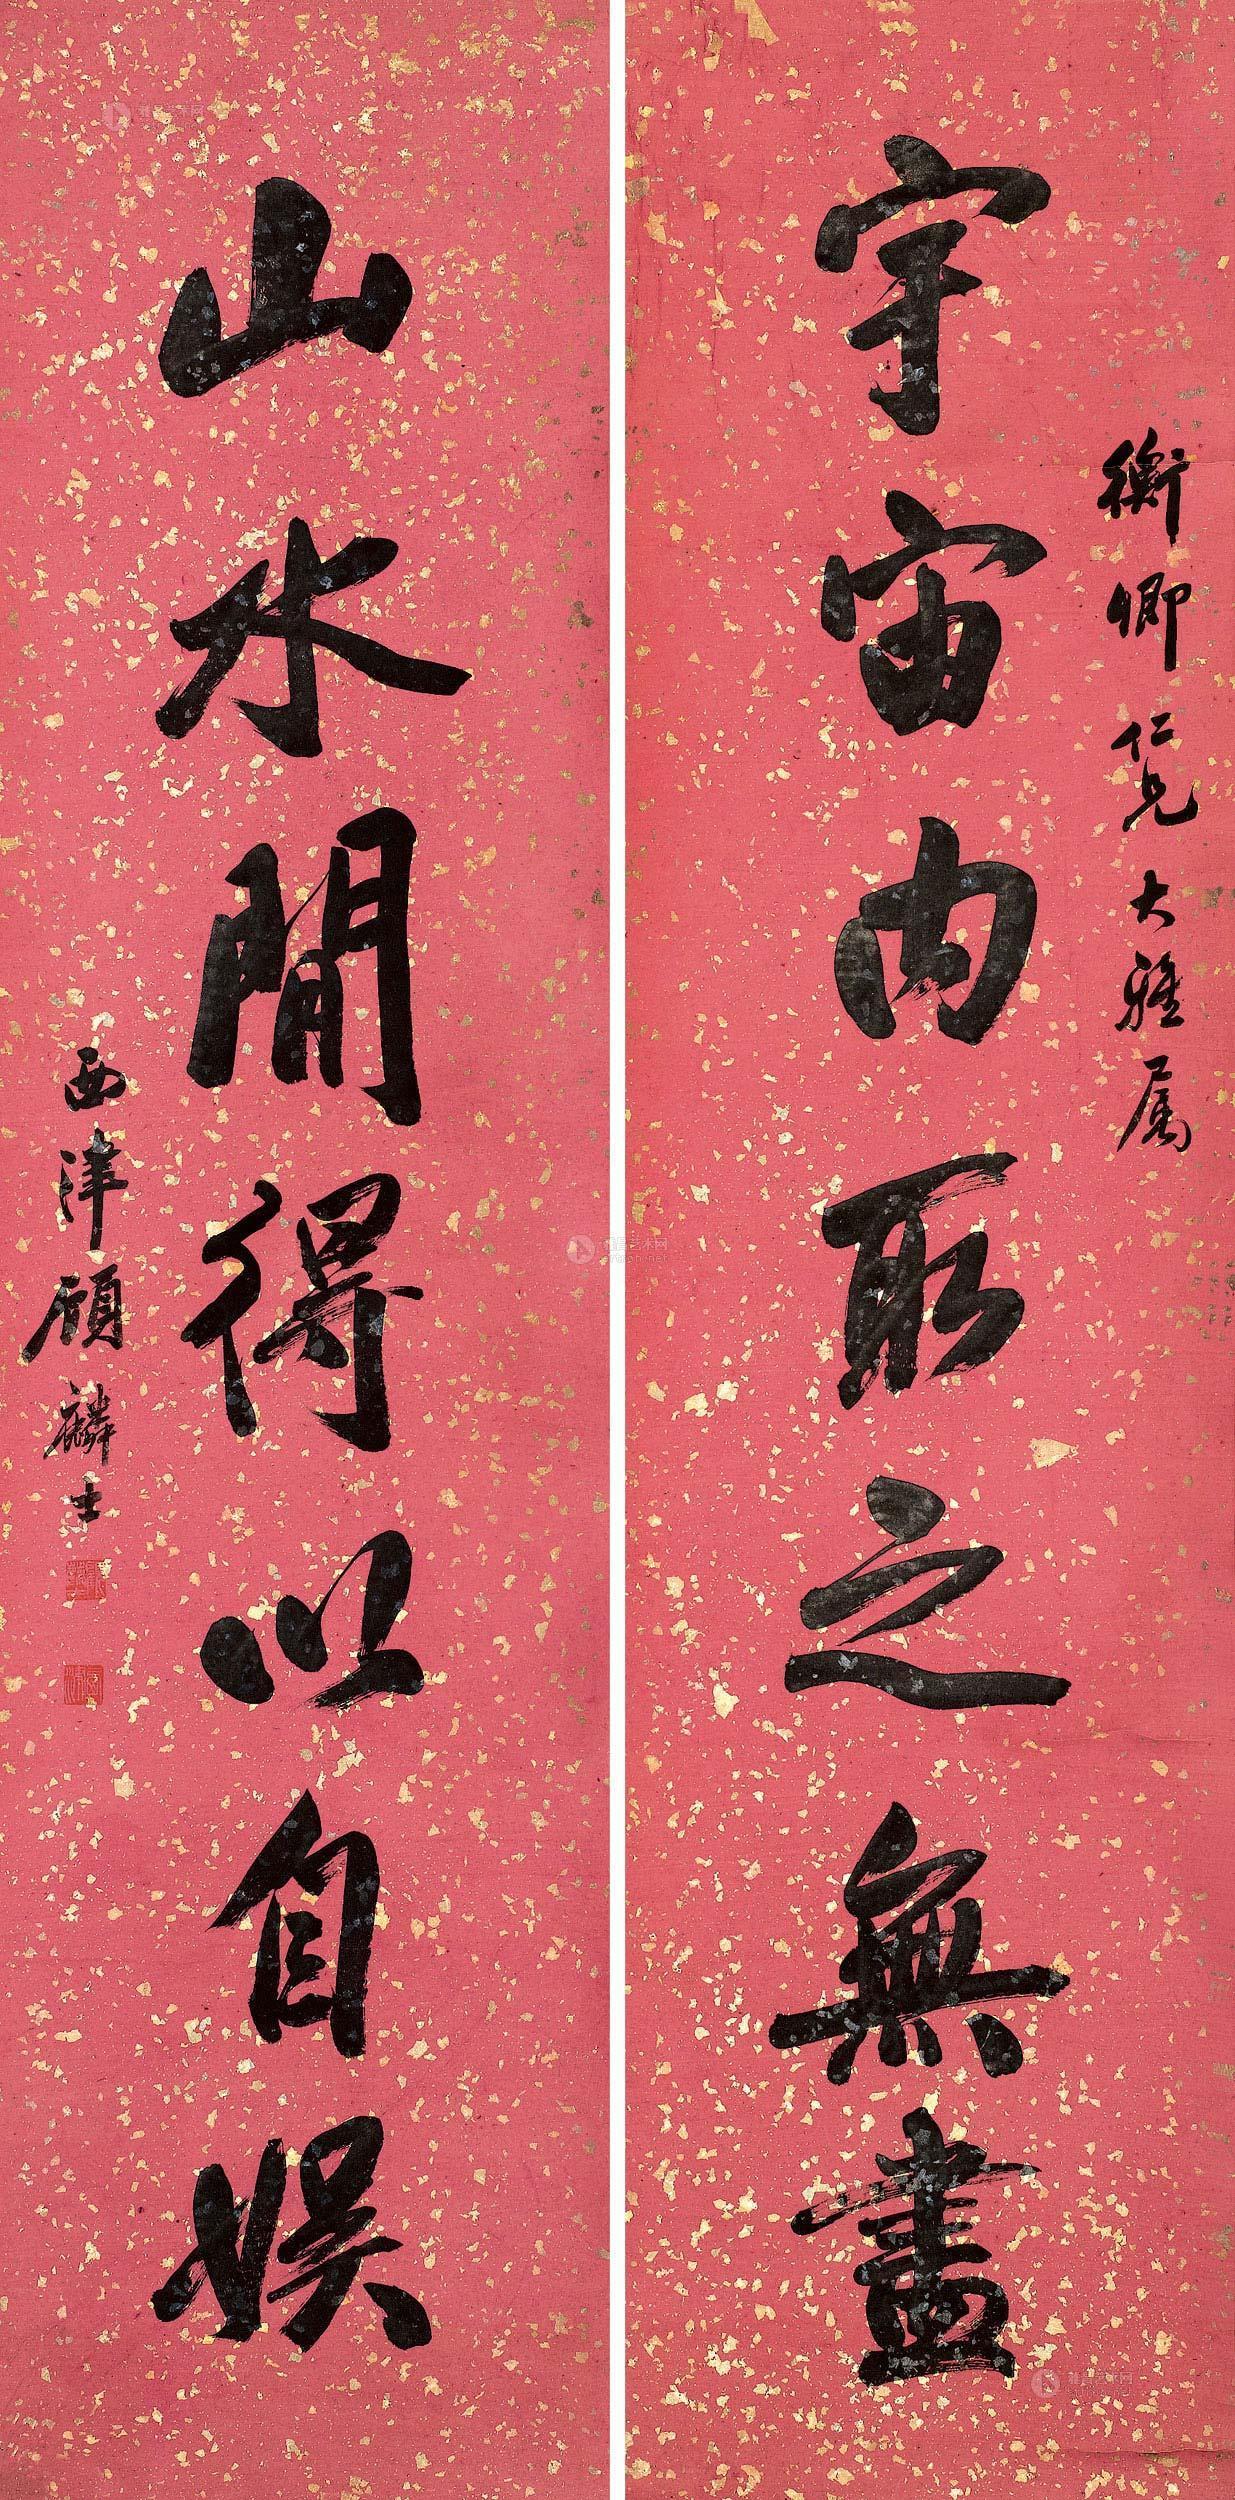 衡卿仁兄大雅属
宇宙内取之無盡
山水間得以自娱
西津顾麟士